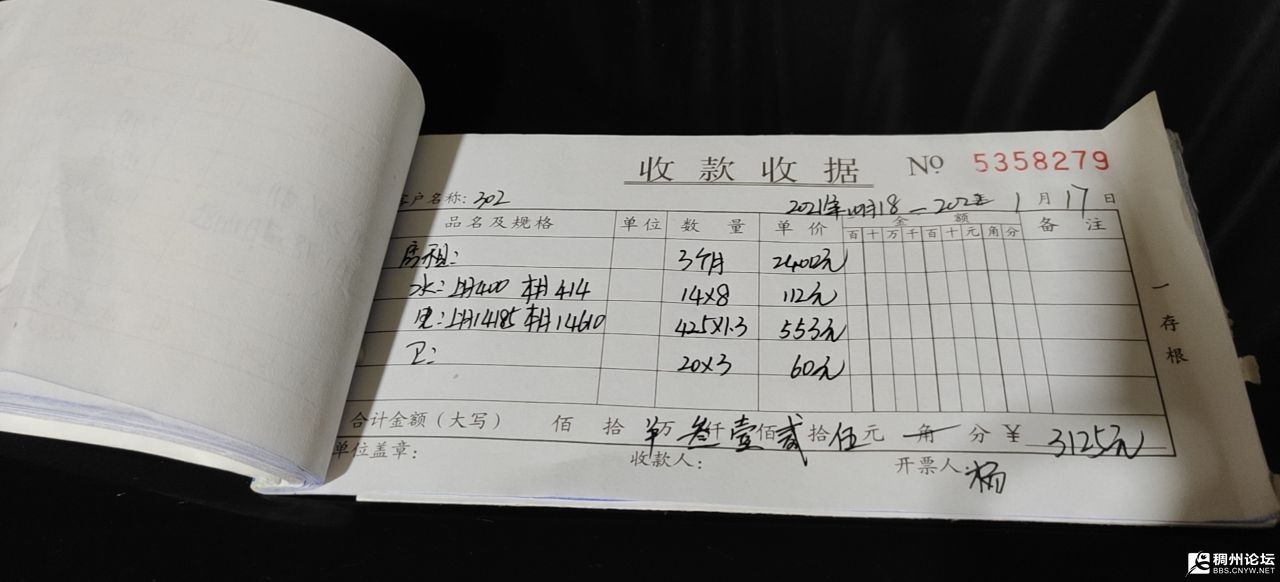 收款收据 № 5358279
客户名称: 302 2021年10月18—2022年1月17日
品名及规格 单位 数量 单价 金额 备注
百 十 万 千 百 十 元 角 分
房租: 3个月 2400元
水:上月400 本月414 14×8 112元
电:上月14185 本月14610 425×1.3 553元
卫: 20×3 60元
一存根
合计金额(大写) 佰 拾 万叁仟壹佰贰拾伍元 角 分 ¥ 3125元
单位盖章: 收款人: 开票人:杨
稠州论坛
BBS.CNYW.NET